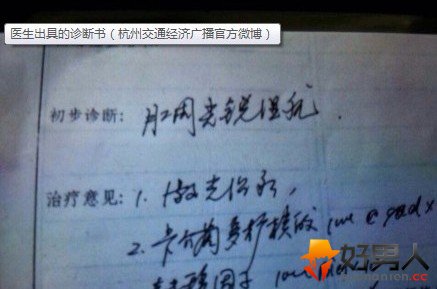 医生出具的诊断书（杭州交通经济广播官方微博）
初步诊断: 肛周尖锐湿疣.
治疗意见: 1. 激光治疗,
2. 卡介菌多糖核酸
转移因子
好男人